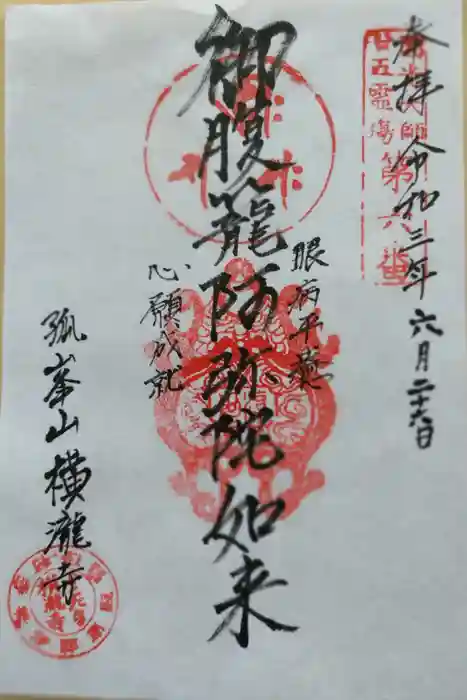 奉拝 令和三年六月二十六日
廿五霊場第六番
眼病平癒
御腹籠阿弥陀如来
心願成就
孤峯山 横瀧寺